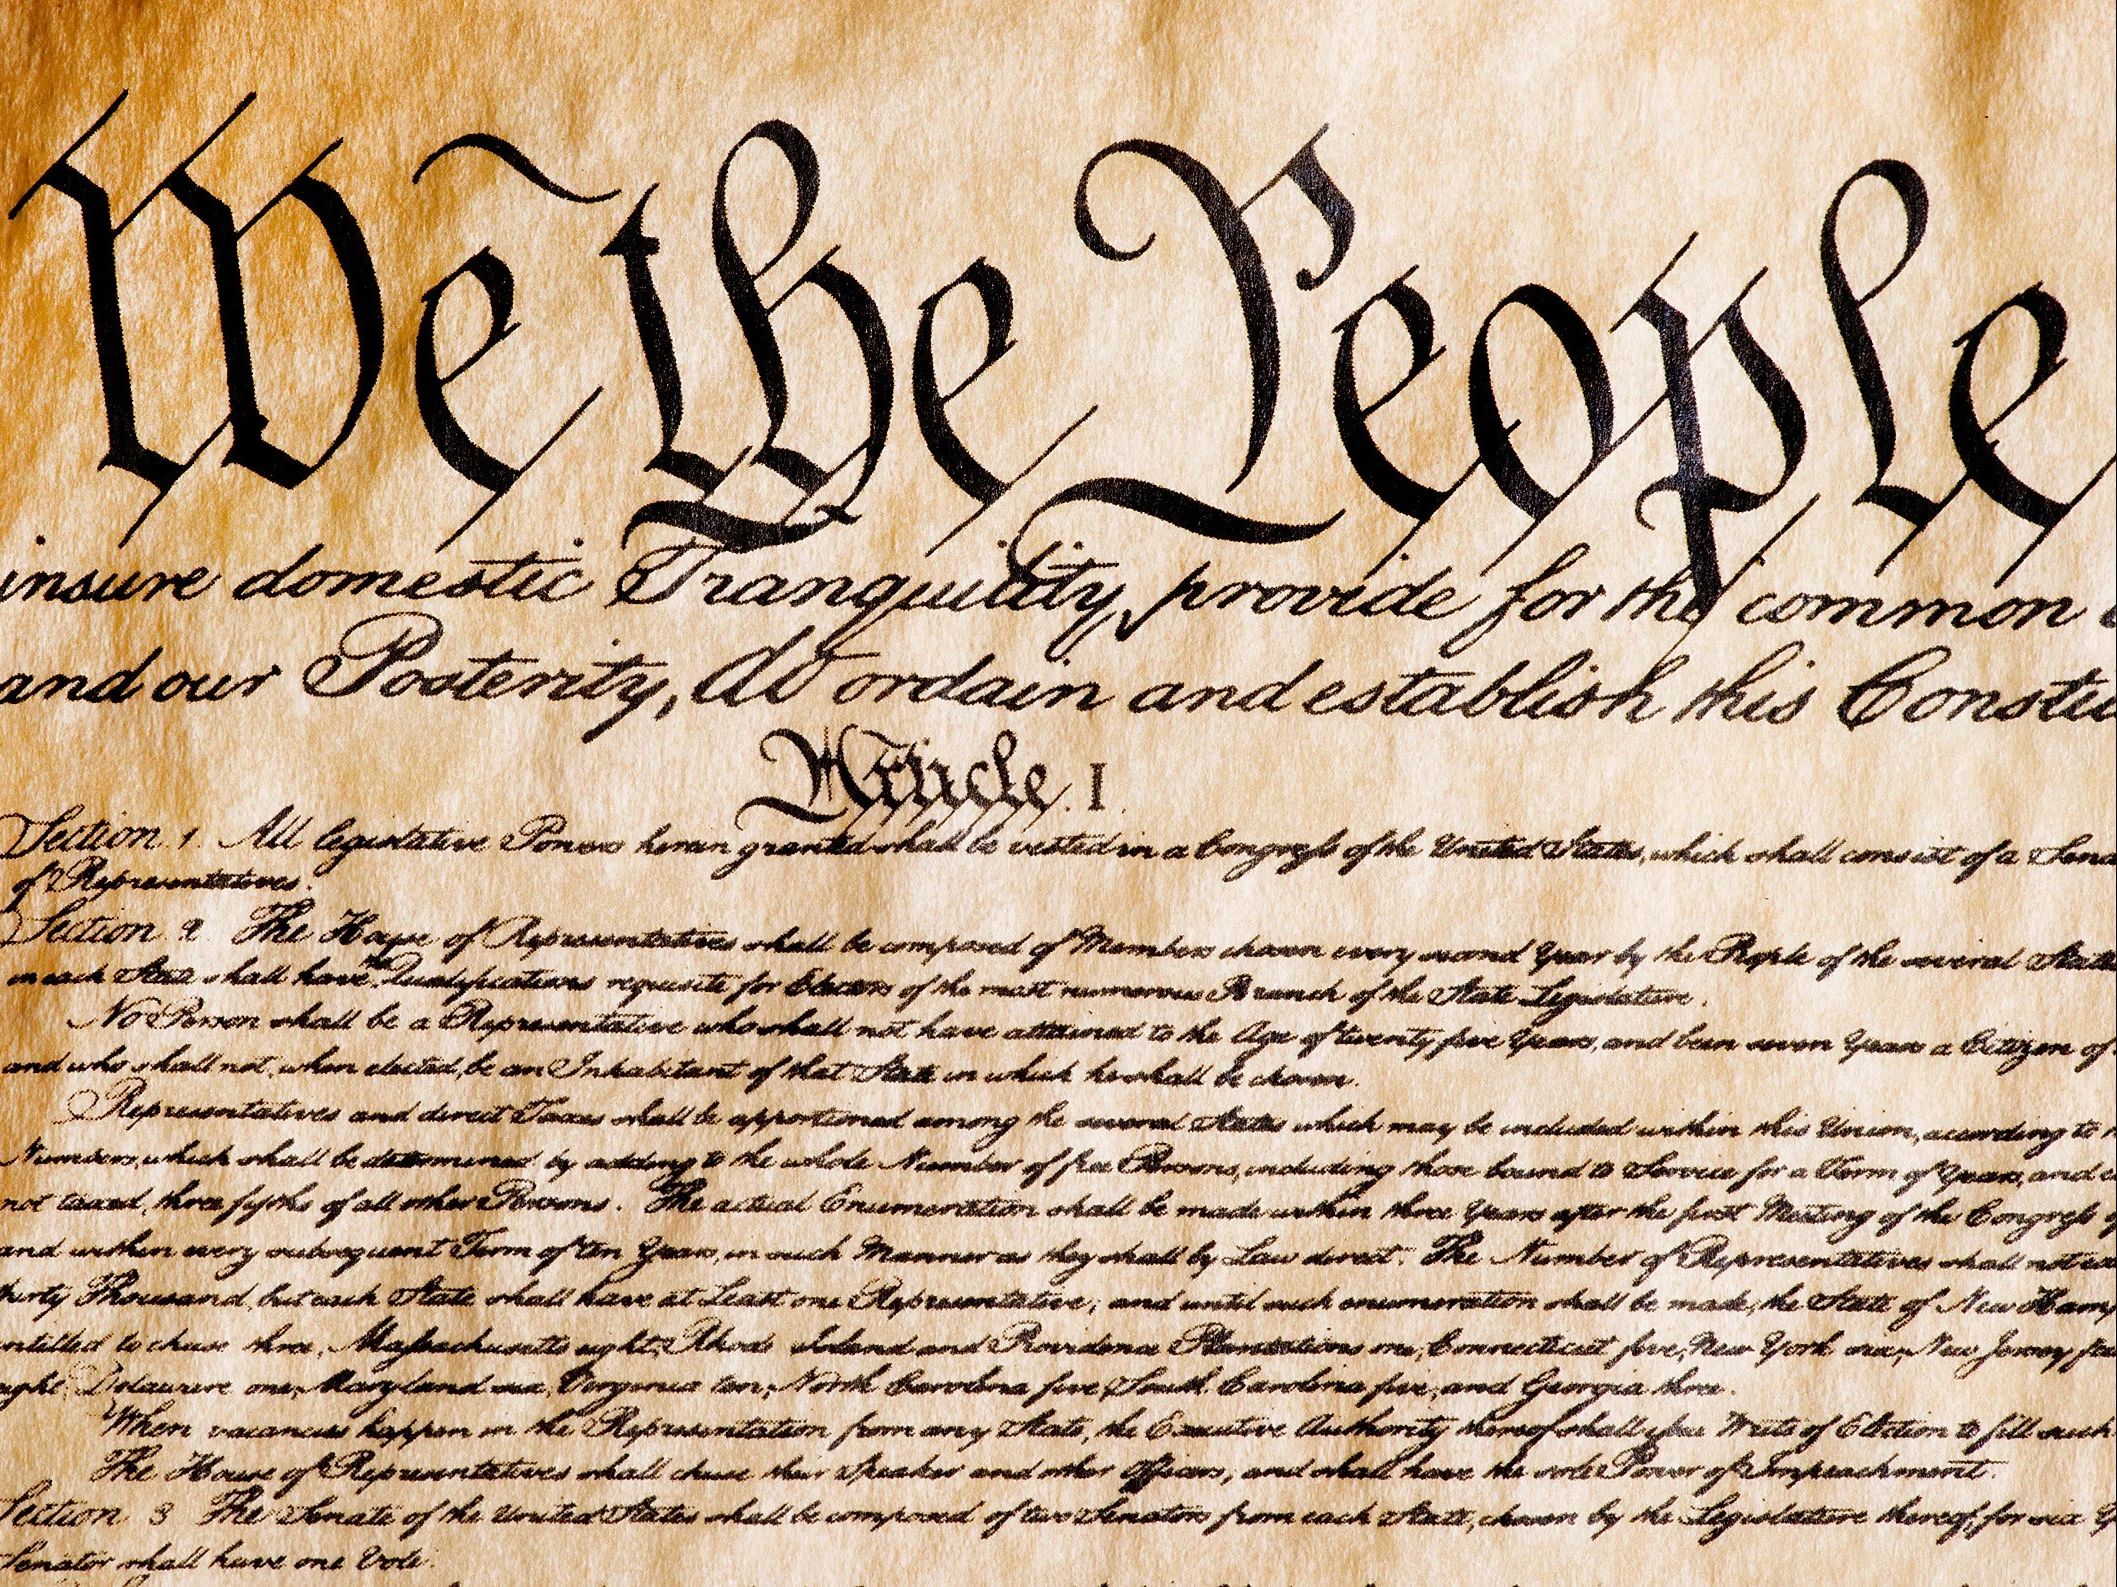 We the People
insure domestic Tranquility, provide for the common
and our Posterity, do ordain and establish this Constitu
Article. I.
Section. 1. All legislative Powers herein granted shall be vested in a Congress of the United States, which shall consist of a Sena
of Representatives.
Section. 2. The House of Representatives shall be composed of Members chosen every second Year by the People of the several States
in each State shall have the Qualifications requisite for Electors of the most numerous Branch of the State Legislature.
No Person shall be a Representative who shall not have attained to the Age of twenty five Years, and been seven Years a Citizen of
and who shall not, when elected, be an Inhabitant of that State in which he shall be chosen.
Representatives and direct Taxes shall be apportioned among the several States which may be included within this Union, according to
Numbers, which shall be determined by adding to the whole Number of free Persons, including those bound to Service for a Term of Years, and
not taxed, three fifths of all other Persons. The actual Enumeration shall be made within three Years after the first Meeting of the Congress
and within every subsequent Term of ten Years, in such Manner as they shall by Law direct. The Number of Representatives shall not ex
thirty Thousand, but each State shall have at Least one Representative; and until such enumeration shall be made, the State of New Hamp
entitled to chuse three, Massachusetts eight, Rhode Island and Providence Plantations one, Connecticut five, New York six, New Jersey
eight, Delaware one, Maryland six, Virginia ten, North Carolina five, South Carolina five, and Georgia three.
When vacancies happen in the Representation from any State, the Executive Authority thereof shall issue Writs of Election to fill such
The House of Representatives shall chuse their Speaker and other Officers; and shall have the sole Power of Impeachment.
Section. 3. The Senate of the United States shall be composed of two Senators from each State, chosen by the Legislature thereof, for six
Senator shall have one Vote.